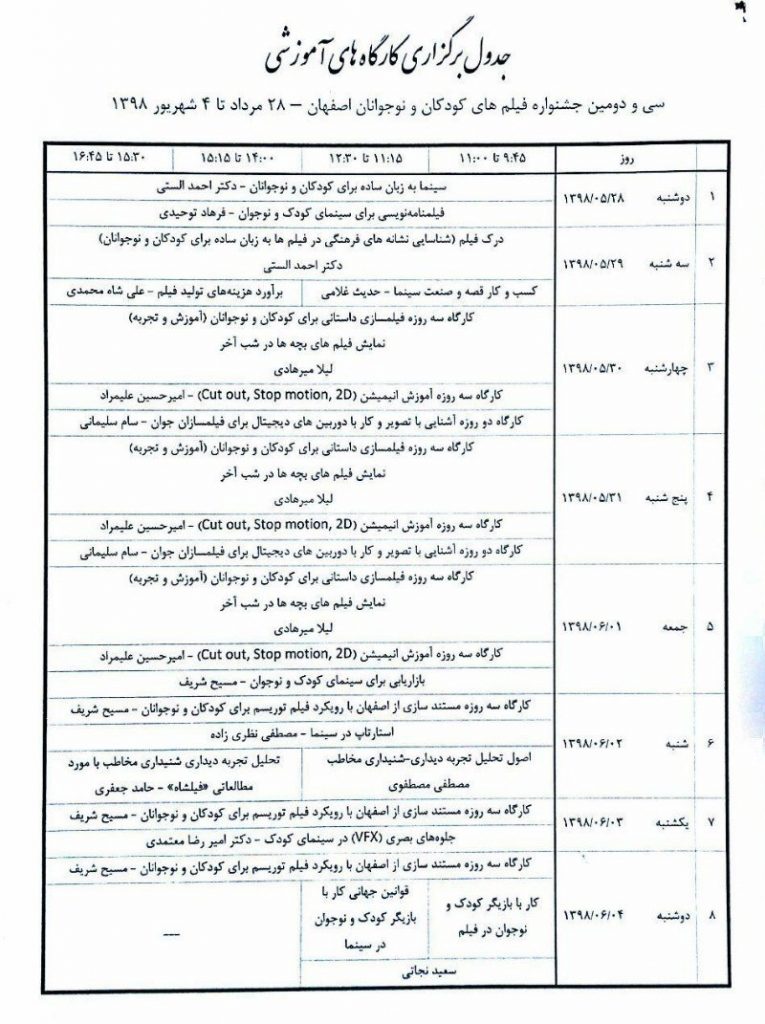 جدول برگزاری کارگاه های آموزشی
سی و دومین جشنواره فیلم های کودکان و نوجوانان اصفهان – ۲۸ مرداد تا ۴ شهریور ۱۳۹۸
روز
۹:۴۵ تا ۱۱:۰۰
۱۱:۱۵ تا ۱۲:۳۰
۱۴:۰۰ تا ۱۵:۱۵
۱۵:۳۰ تا ۱۶:۴۵
۱
دوشنبه ۱۳۹۸/۰۵/۲۸
سینما به زبان ساده برای کودکان و نوجوانان – دکتر احمد الستی
فیلمنامه‌نویسی برای سینمای کودک و نوجوان – فرهاد توحیدی
۲
سه شنبه ۱۳۹۸/۰۵/۲۹
درک فیلم (شناسایی نشانه های فرهنگی در فیلم ها به زبان ساده برای کودکان و نوجوانان)
دکتر احمد الستی
کسب و کار قصه و صنعت سینما – حدیث غلامی
برآورد هزینه‌های تولید فیلم – علی شاه محمدی
۳
چهارشنبه ۱۳۹۸/۰۵/۳۰
کارگاه سه روزه فیلمسازی داستانی برای کودکان و نوجوانان (آموزش و تجربه)
نمایش فیلم های بچه ها در شب آخر
لیلا میرهادی
کارگاه سه روزه آموزش انیمیشن (Cut out, Stop motion, 2D) – امیرحسین علیمراد
کارگاه دو روزه آشنایی با تصویر و کار با دوربین های دیجیتال برای فیلمسازان جوان – سام سلیمانی
۴
پنج شنبه ۱۳۹۸/۰۵/۳۱
کارگاه سه روزه فیلمسازی داستانی برای کودکان و نوجوانان (آموزش و تجربه)
نمایش فیلم های بچه ها در شب آخر
لیلا میرهادی
کارگاه سه روزه آموزش انیمیشن (Cut out, Stop motion, 2D) – امیرحسین علیمراد
کارگاه دو روزه آشنایی با تصویر و کار با دوربین های دیجیتال برای فیلمسازان جوان – سام سلیمانی
۵
جمعه ۱۳۹۸/۰۶/۰۱
کارگاه سه روزه فیلمسازی داستانی برای کودکان و نوجوانان (آموزش و تجربه)
نمایش فیلم های بچه ها در شب آخر
لیلا میرهادی
کارگاه سه روزه آموزش انیمیشن (Cut out, Stop motion, 2D) – امیرحسین علیمراد
بازاریابی برای سینمای کودک و نوجوان – مسیح شریف
۶
شنبه ۱۳۹۸/۰۶/۰۲
کارگاه سه روزه مستند سازی از اصفهان با رویکرد فیلم توریسم برای کودکان و نوجوانان – مسیح شریف
استارتاپ در سینما – مصطفی نظری زاده
اصول تحلیل تجربه دیداری-شنیداری مخاطب
مصطفی مصطفوی
تحلیل تجربه دیداری شنیداری مخاطب با مورد
مطالعاتی «فیلشاه» – حامد جعفری
۷
یکشنبه ۱۳۹۸/۰۶/۰۳
کارگاه سه روزه مستند سازی از اصفهان با رویکرد فیلم توریسم برای کودکان و نوجوانان – مسیح شریف
جلوه‌های بصری (VFX) در سینمای کودک – دکتر امیر رضا معتمدی
۸
دوشنبه ۱۳۹۸/۰۶/۰۴
کارگاه سه روزه مستند سازی از اصفهان با رویکرد فیلم توریسم برای کودکان و نوجوانان – مسیح شریف
کار با بازیگر کودک و
نوجوان در فیلم
قوانین جهانی کار با
بازیگر کودک و نوجوان
در سینما
---
سعید نجاتی